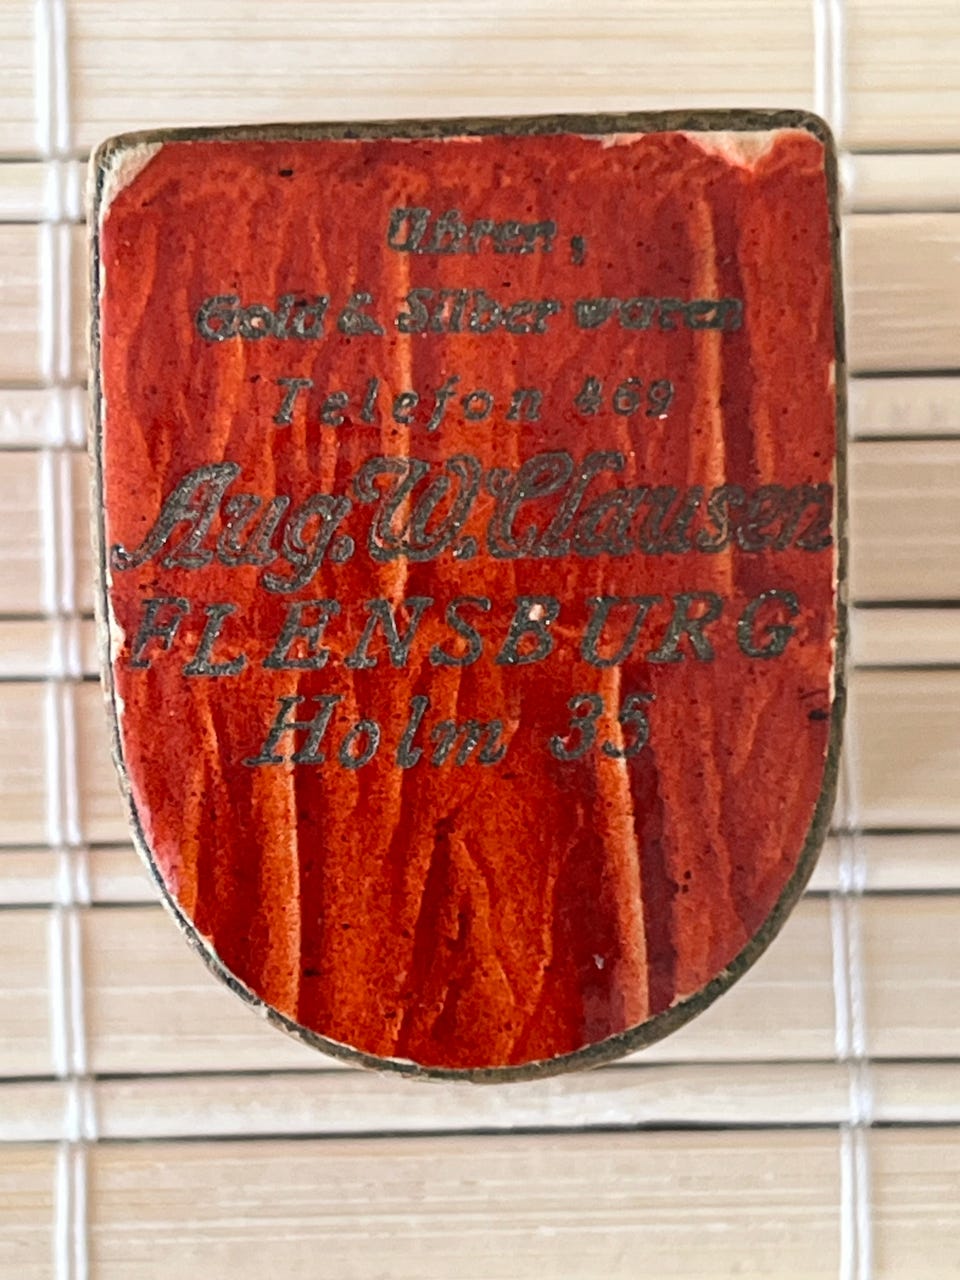 Uhren,
Gold & Silber waren
Telefon 469
Aug. W. Clausen
FLENSBURG
Holm 35